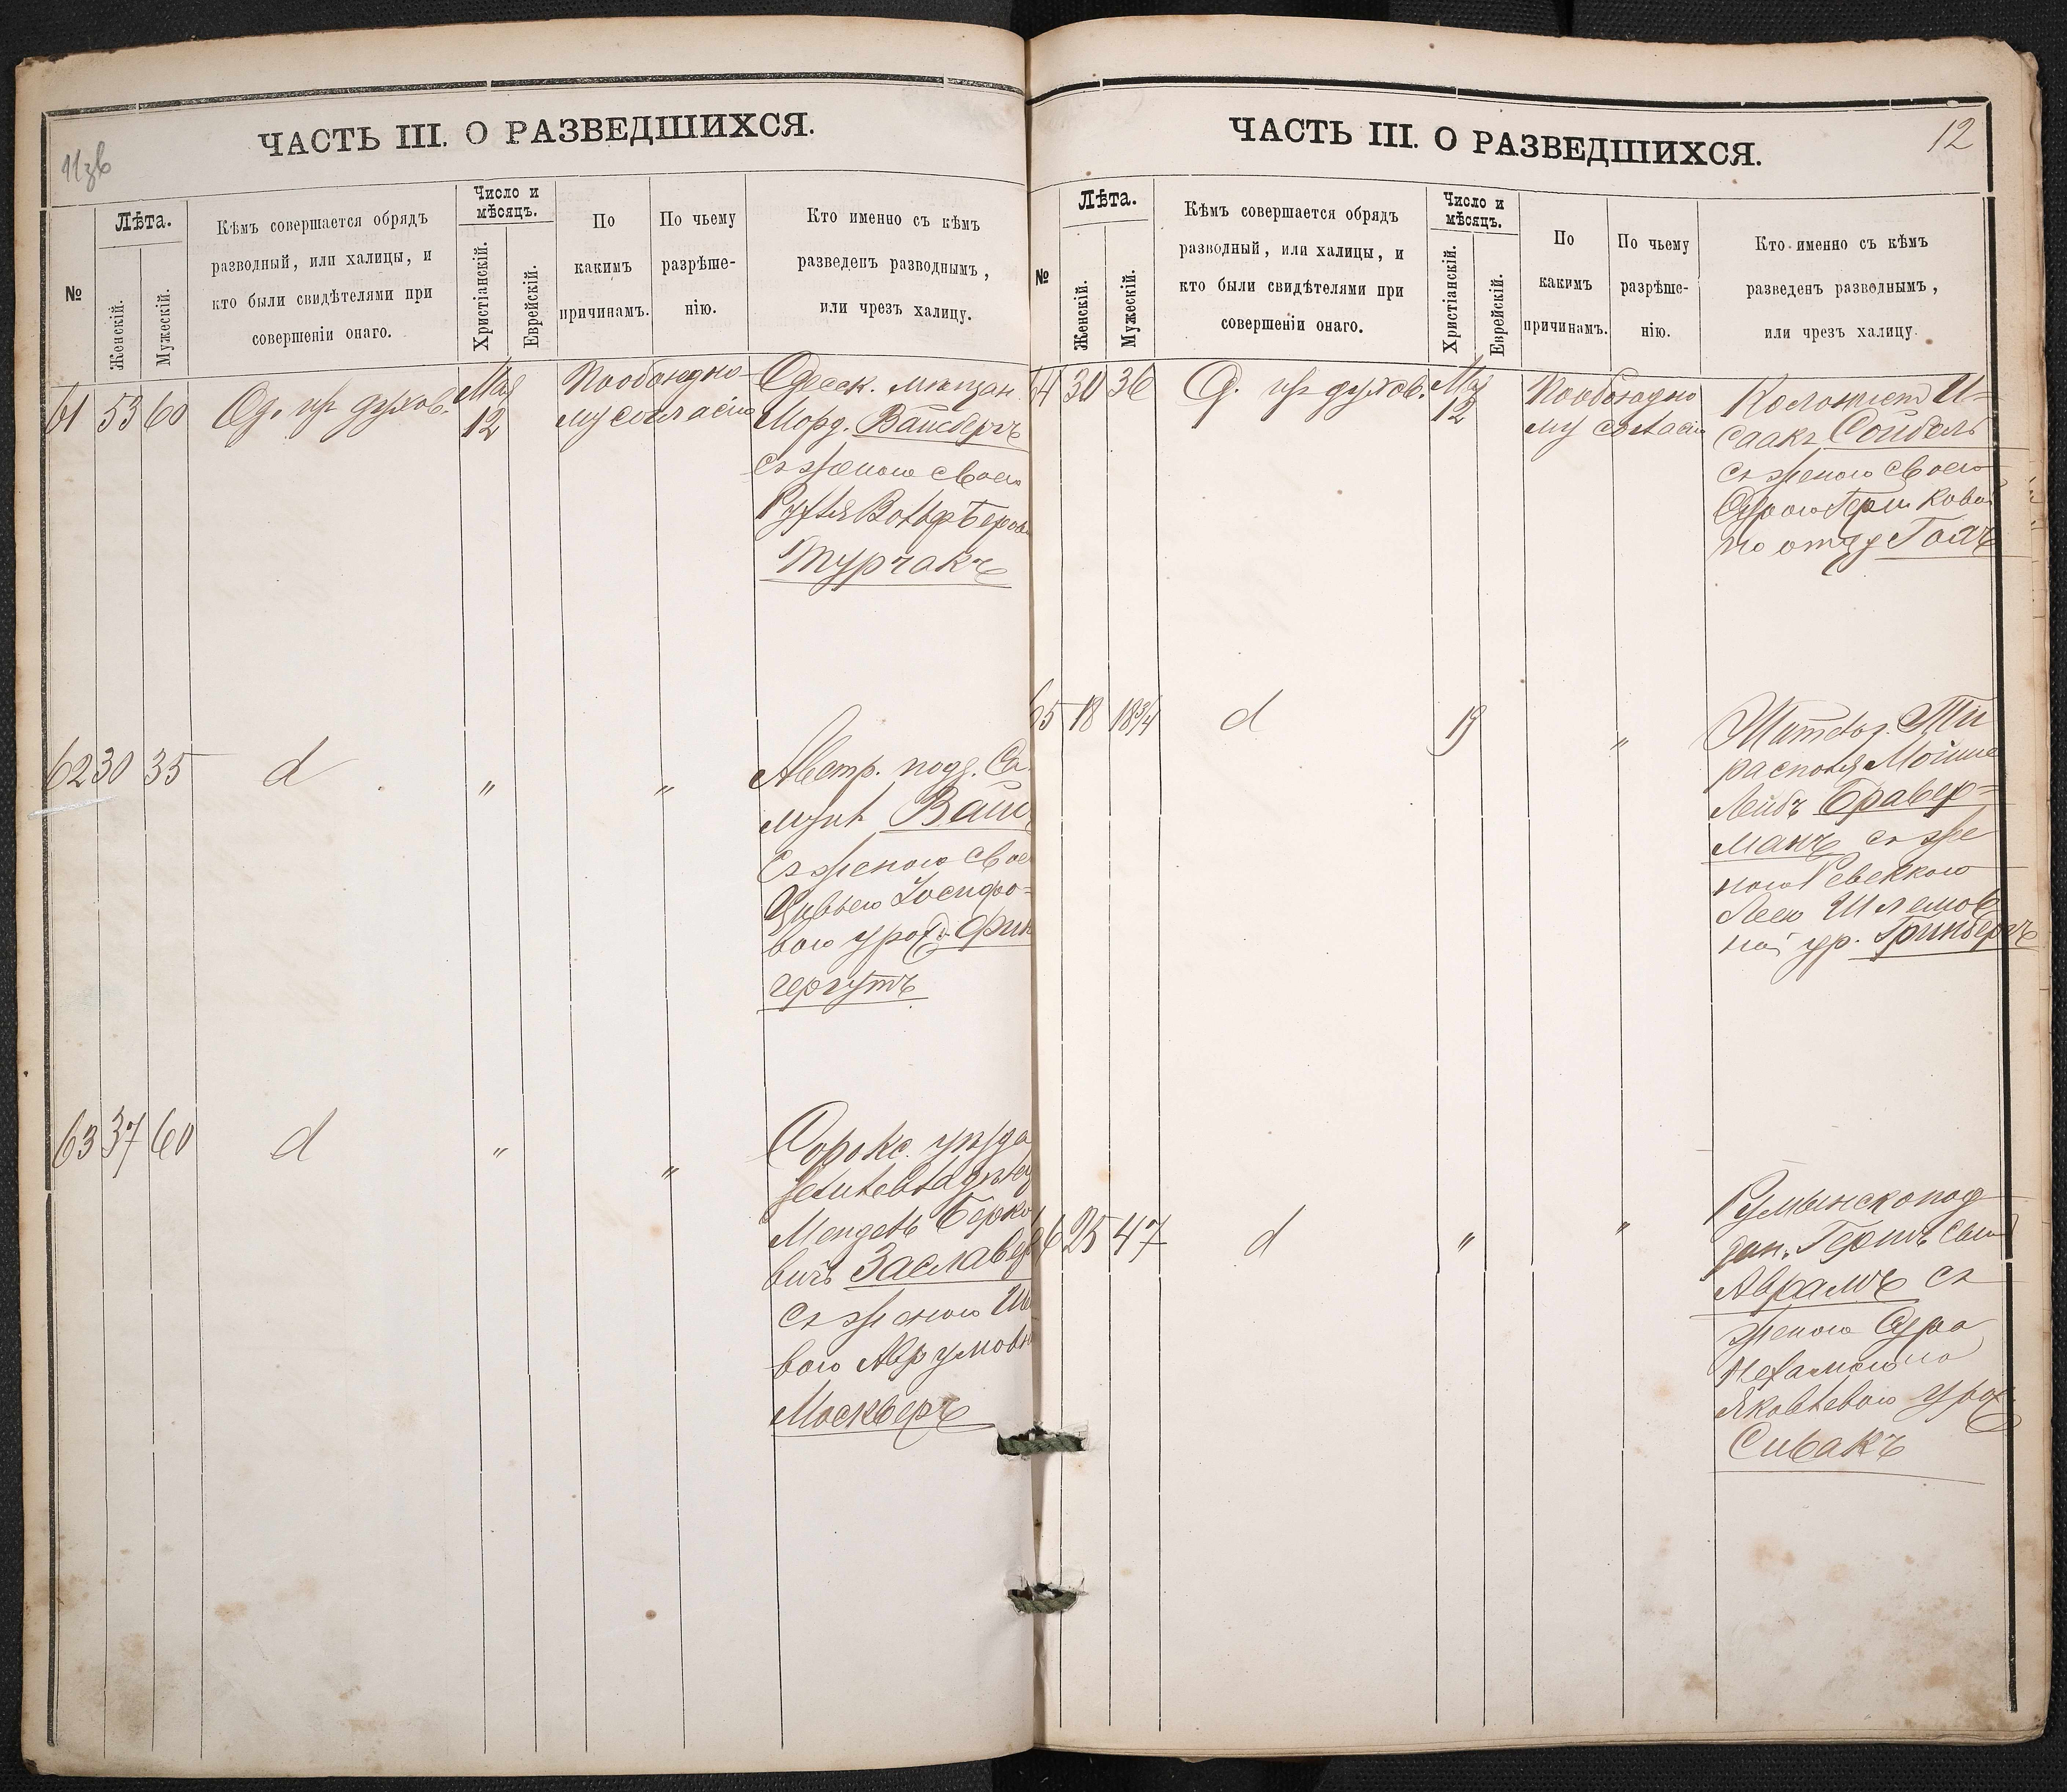 ЧАСТЬ III. О РАЗВЕДШИХСЯ.
№
Лѣта.
Женскій.
Мужескій.
Кѣмъ совершается обрядъ
разводный, или халицы, и
кто были свидѣтелями при
совершеніи онаго.
Число и
мѣсяцъ.
Христіанскій.
Еврейскій.
По
какимъ
причинамъ.
По чьему
разрѣше-
нію.
Кто именно съ кѣмъ
разведенъ разводнымъ,
или чрезъ халицу.
61 53 60 Од. духов. Мая
12
По обоюдно-
му согласію
Одесск. мѣщан.
Морд. Вайсбергъ
съ женою своею
Вольф Беров
Турчакъ
62 30 35 d " "
Австр. подд. Са
муил Вайс
съ женою свое
Цивьею Iосифо-
вою урожд. Фин
гергутъ
63 37 60 d " "
Сорокс. уѣзда
Мендель Берко
вичъ Заславер
съ женою
вою
Москверъ
ЧАСТЬ III. О РАЗВЕДШИХСЯ.
12
№
Лѣта.
Женскій.
Мужескій.
Кѣмъ совершается обрядъ
разводный, или халицы, и
кто были свидѣтелями при
совершеніи онаго.
Число и
мѣсяцъ.
Христіанскій.
Еврейскій.
По
какимъ
причинамъ.
По чьему
разрѣше-
нію.
Кто именно съ кѣмъ
разведенъ разводнымъ,
или чрезъ халицу.
64 30 36 О. духов. Мая
12
По обоюдно
му согласію
Колонист И-
саакъ Сойбель
съ женою своею
Сурою Гершковой
по отцу
65 18 18 3/4 d 19 "
Житель г. Ти
располя Мошко
Лейбъ Бравер-
манъ съ же
ною Ревеккою
Леею Шлемов
ной ур. Гринбергъ
66 25 47 d " "
Румынскопод
дан. Гершъ сын
Аврамъ съ
женою Сура
Нехамою
Яковлевою урож.
Сивакъ